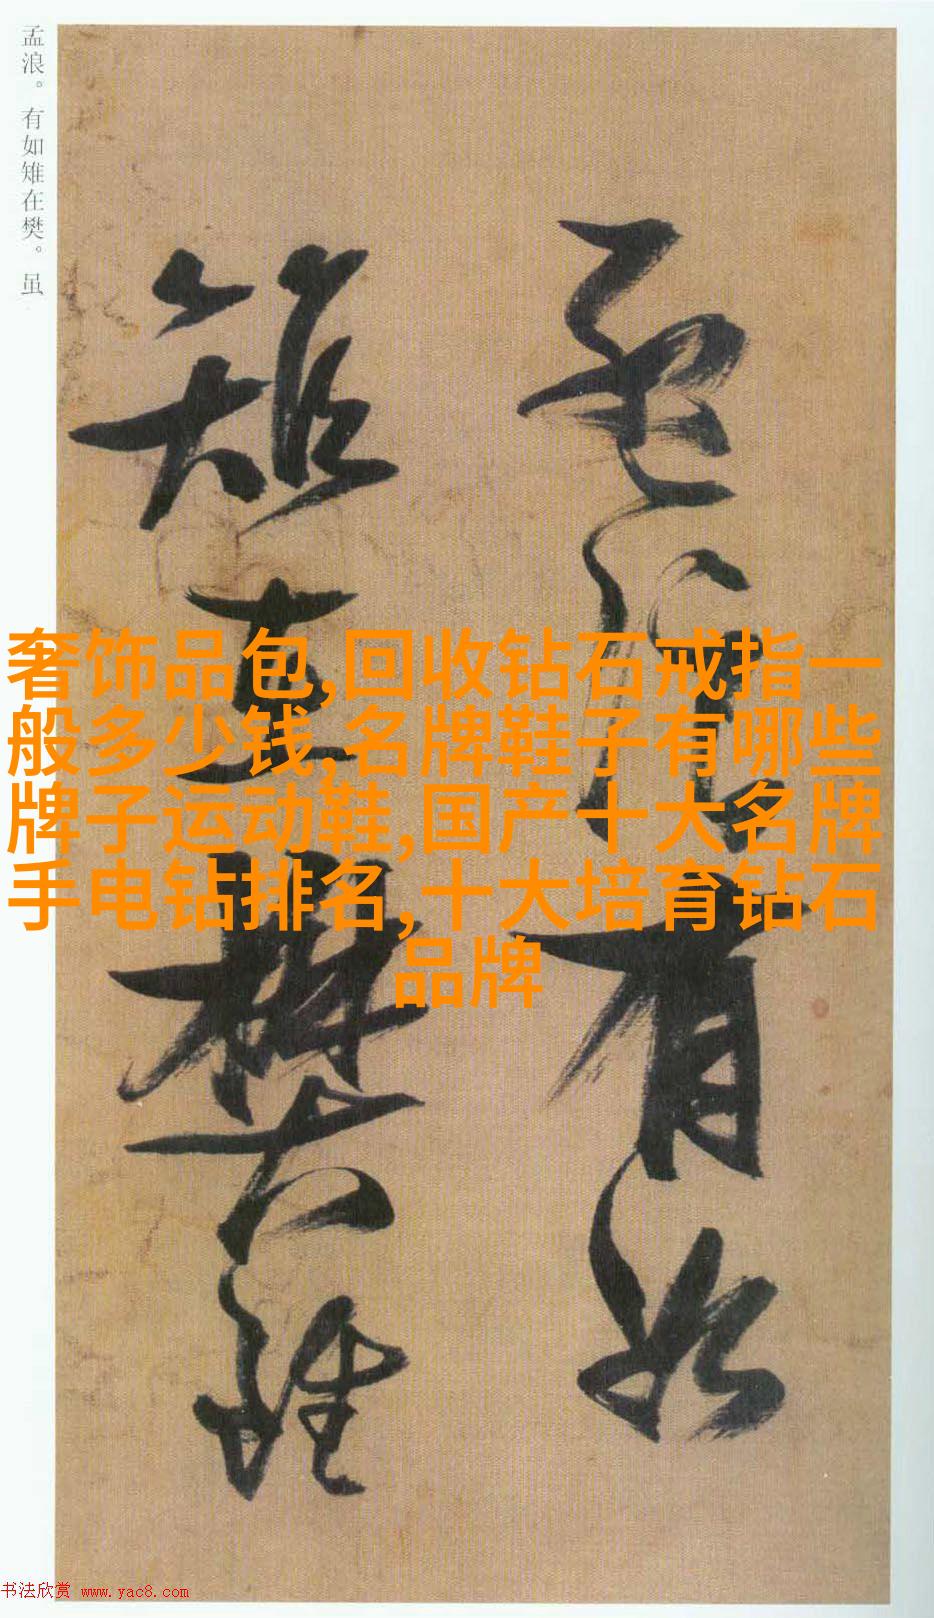 孟浪。有如雉在樊。虽
孟浪有如
雉在樊虽
奢饰品包,回收钻石戒指一
般多少钱,名牌鞋子有哪些
牌子运动鞋,国产十大名牌
手电钻排名,十大培育钻石
品牌
书法欣赏 www.yac8.com